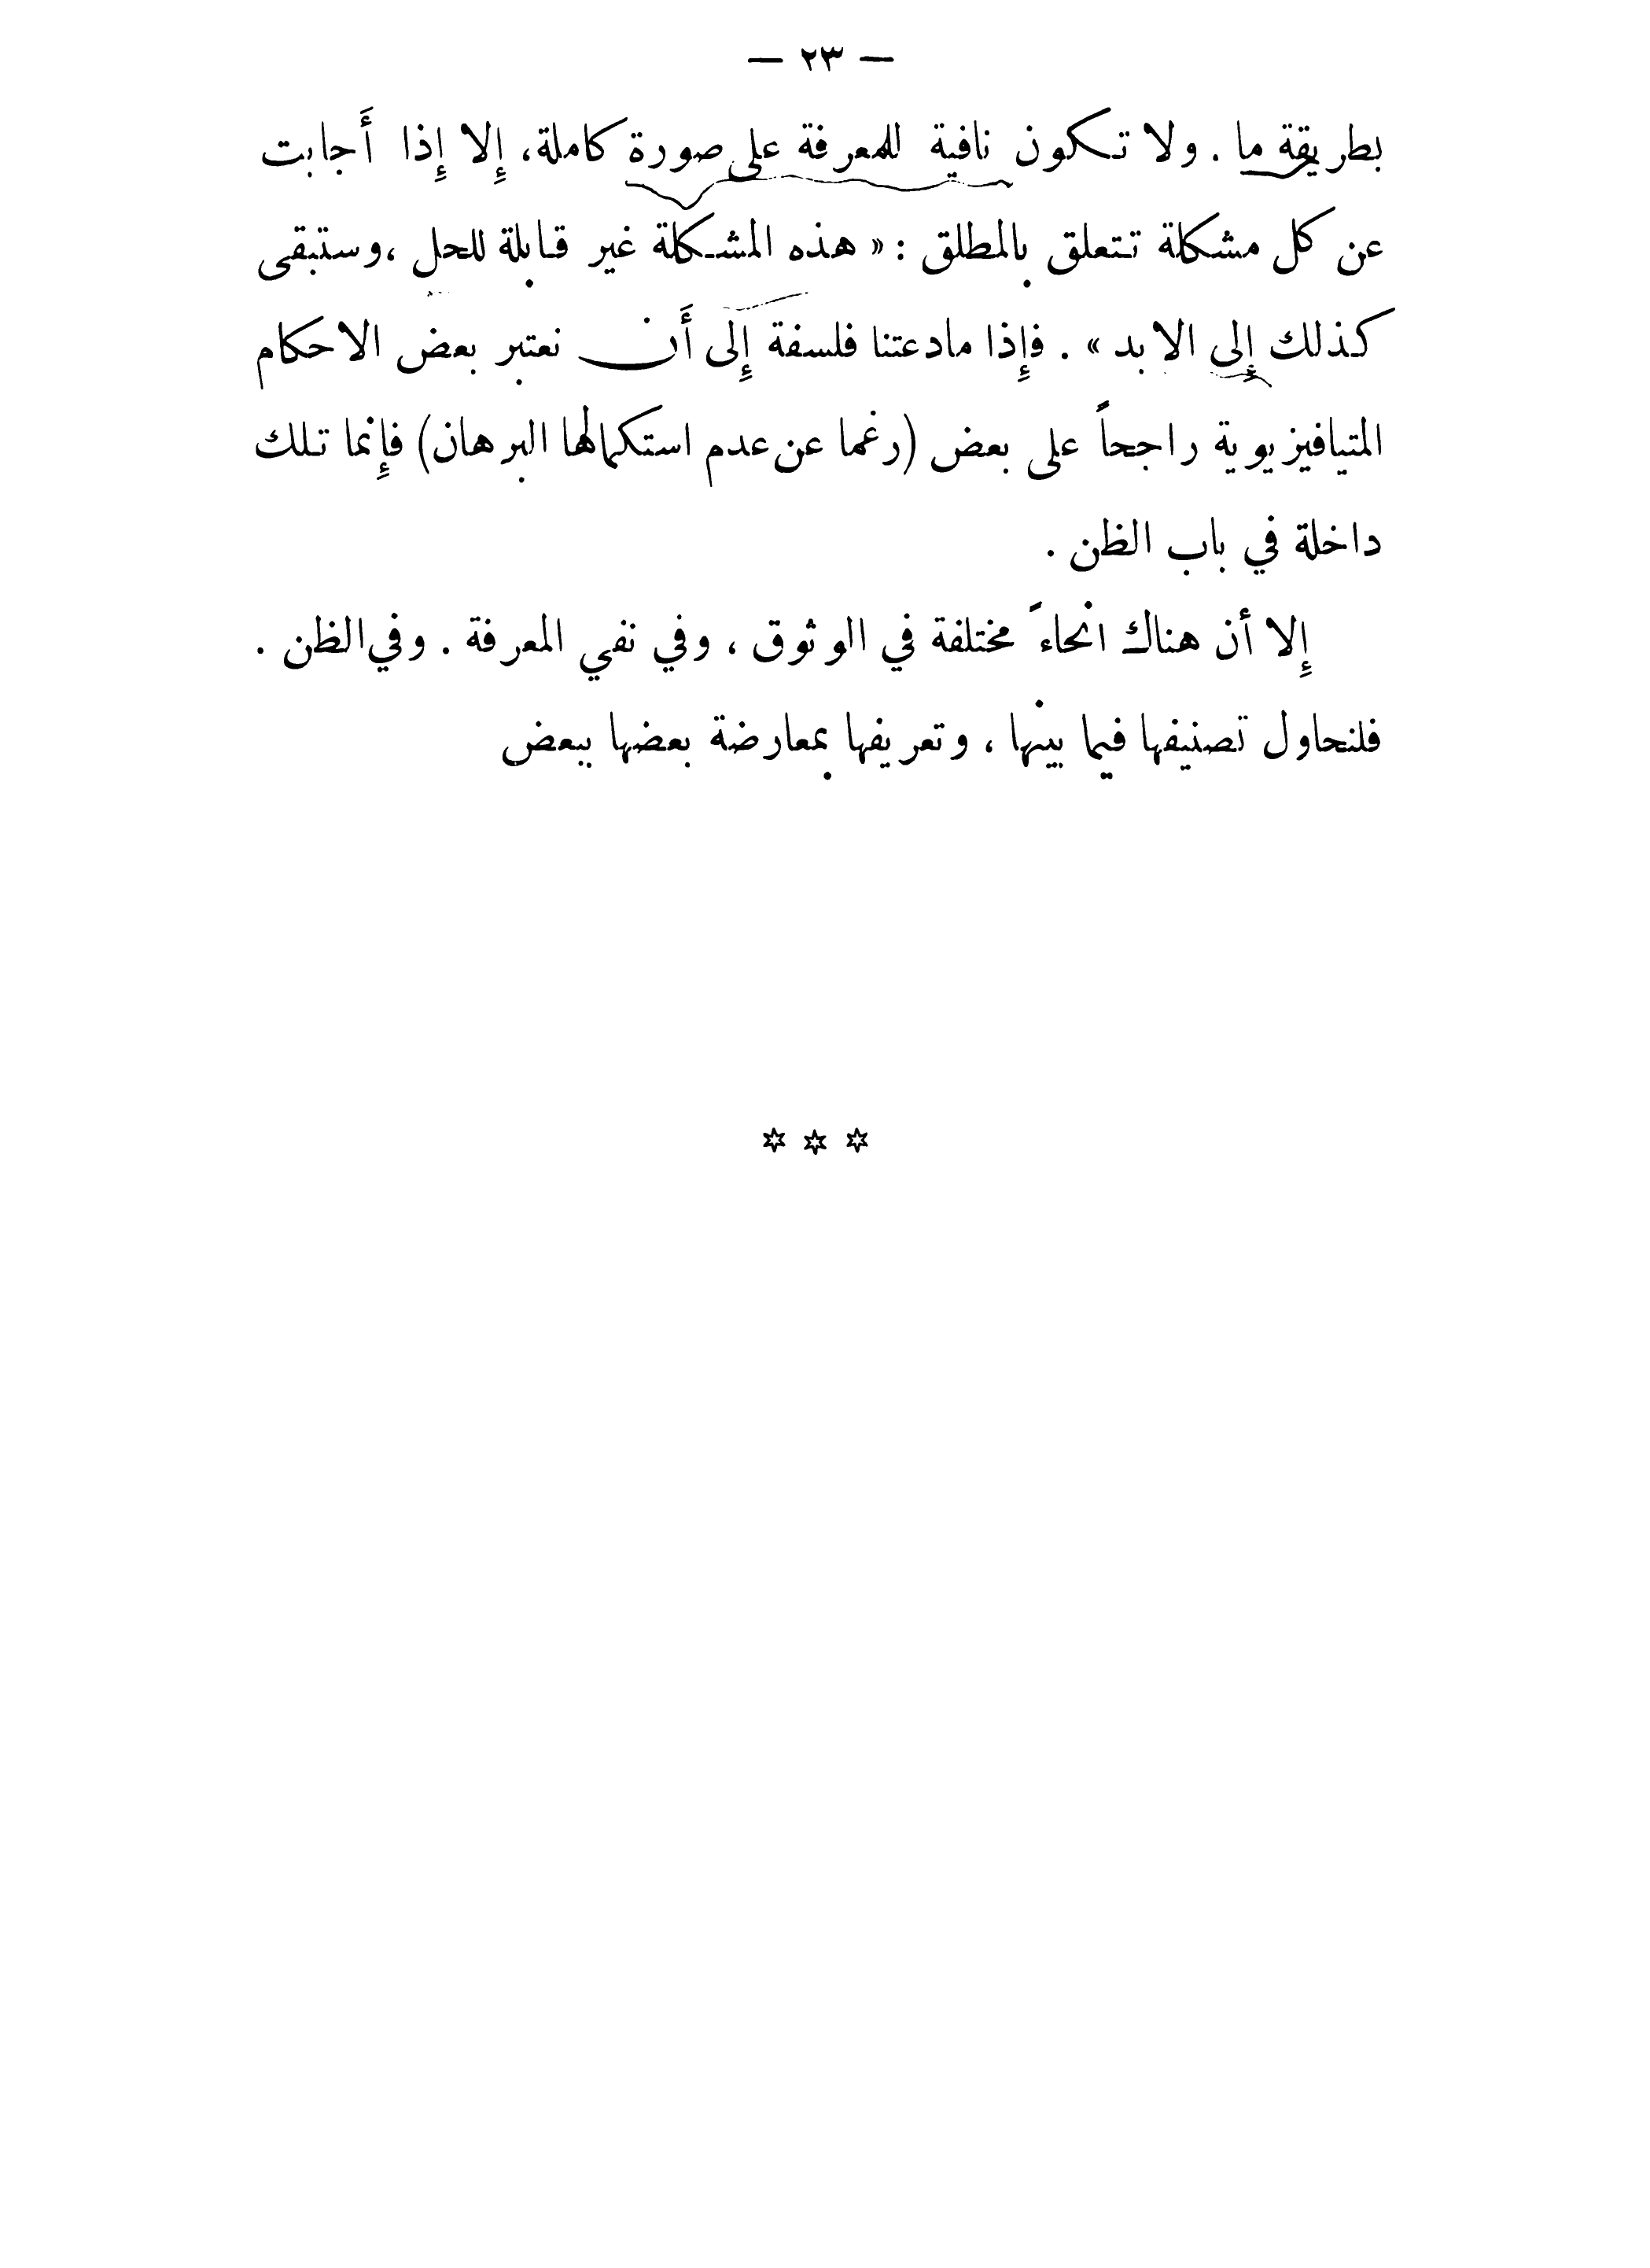 — ٢٣ —
بطريقة ما . ولا تكون نافية للمعرفة على صورة كاملة، إِلا إِذا أَجابت
عن كل مشكلة تتعلق بالمطلق : « هذه المشكلة غير قابلة للحل ،وستبقى
كذلك إِلى الابد » . فإِذا مادعتنا فلسفة إِلى أَن نعتبر بعض الاحكام
المتيافيزيوية راجحاً على بعض (رغما عن عدم استكمالها البرهان) فإِنما تلك
داخلة في باب الظن .
إِلا أن هناك انحاءً مختلفة في الوثوق ، وفي نفي المعرفة . وفي الظن .
فلنحاول تصنيفها فيما بينها ، وتعريفها بمعارضة بعضها ببعض
✡ ✡ ✡